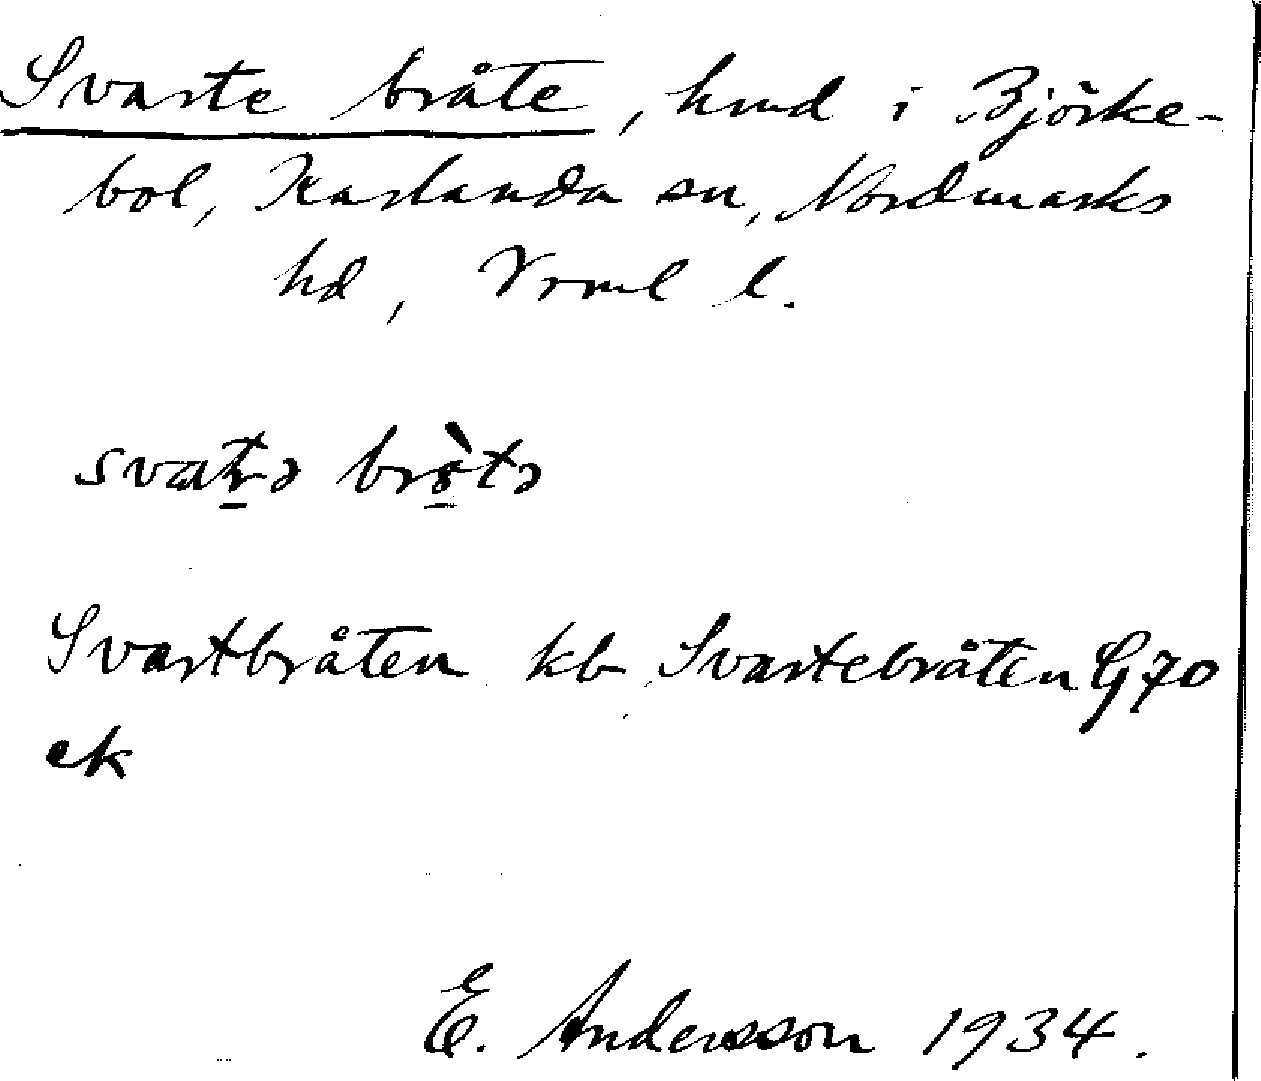 Svarte bråte, hmd i Björke-
bol, Karlanda sn, Nordmarks
hd, Vrml l.
svaʈə brὰtə
Svartbråten kb Svartebråten G70
ek
E. Andersson 1934.